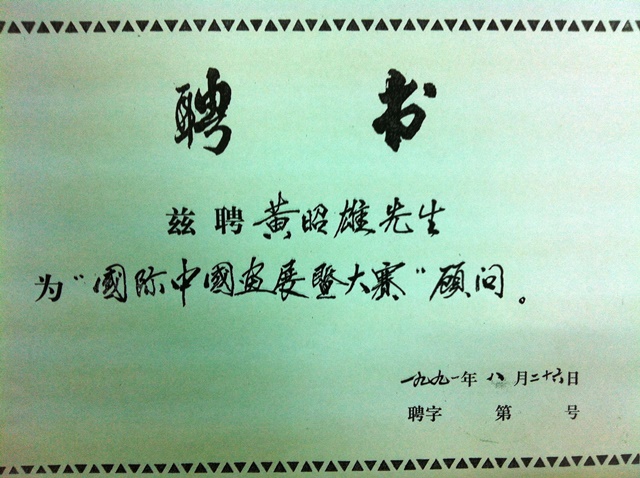 聘书
兹聘黄昭雄先生
为“國际中國画展暨大赛”顾问。
一九九一年八月二十六日
聘字 第 号